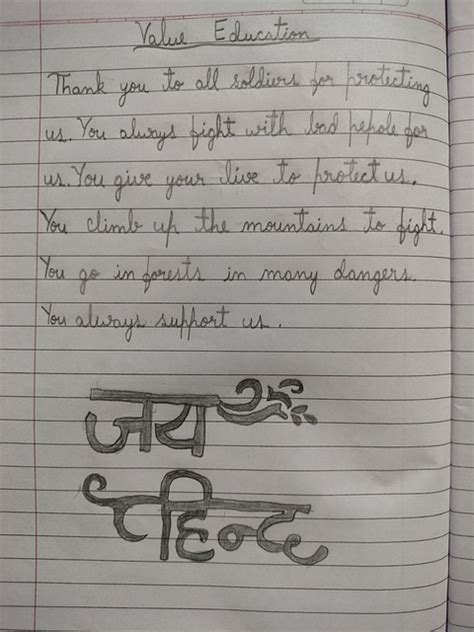 Value Education
Thank you to all soldiers for protecting
us. You always fight with bad pepole for
us. You give your live to protect us.
You climb up the mountains to fight.
You go in forests in many dangers.
You always support us.
जय
हिन्द